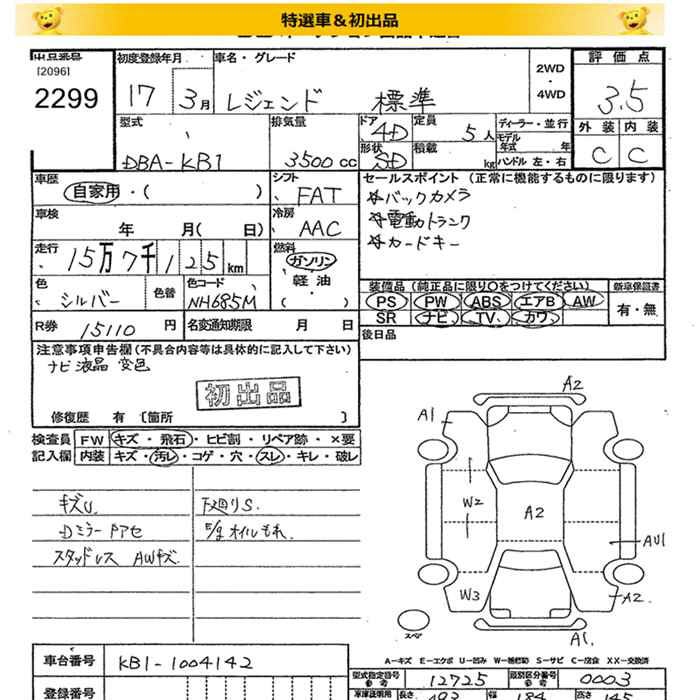 特選車&初出品
出品番号
[2096]
2299
初度登録年月
17 3月
車名・グレード
レジェンド 標準
2WD
・
4WD
評価点
3.5
外装 内装
C C
型式
DBA-KB1
排気量
3500cc
ドア
4D
形状
SD
定員
5人
積載
kg
ディーラー・並行
モデル年式 年
ハンドル 左・右
車歴
自家用・( )
シフト
FAT
車検
年 月( 日)
冷房
AAC
走行
15万7千125km
燃料
ガソリン
・
軽油
・
( )
色
シルバー
色替
色コード
NH685M
R券
15110円
名変通知期限 月 日
セールスポイント (正常に機能するものに限ります)
バックカメラ
電動トランク
カードキー
装備品(純正品に限り○をつけてください)
PS PW ABS エアB AW
SR ナビ TV カワ
新車保証書
有・無
後日品
注意事項申告欄(不具合内容等は具体的に記入して下さい)
ナビ液晶 変色
初出品
修復歴 有〔箇所 〕
検査員 FW キズ・飛石・ヒビ割・リペア跡・×要
記入欄 内装 キズ・汚レ・コゲ・穴・スレ・キレ・破レ
キズU.
Dミラー
スタッドレス AWキズ
下廻りS.
E/g オイルもれ.
A2
A1
W2
A2
AU1
W3
A2
A1.
スペア
A-キズ E-エクボ U-凹み W-補修跡 S-サビ C-腐食 XX-交換済
車台番号
KB1-1004142
型式指定番号
参考
12725
類別区分番号
参考
0003
登録番号
車庫証明用
長さ
幅
184
高さ
145